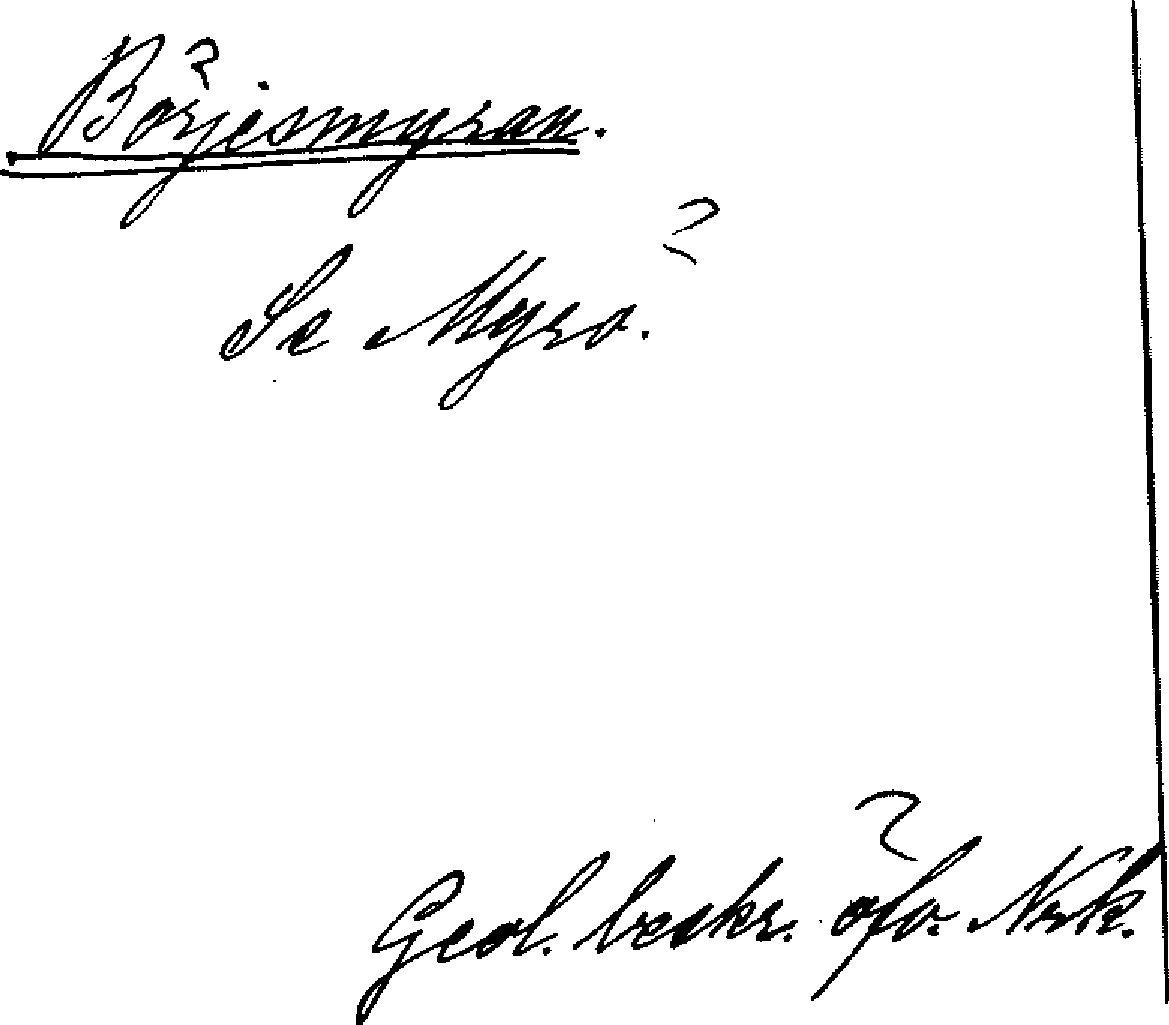 Börjesmyran.
Se Myro.
Geol. beskr. öfv. Nrk.